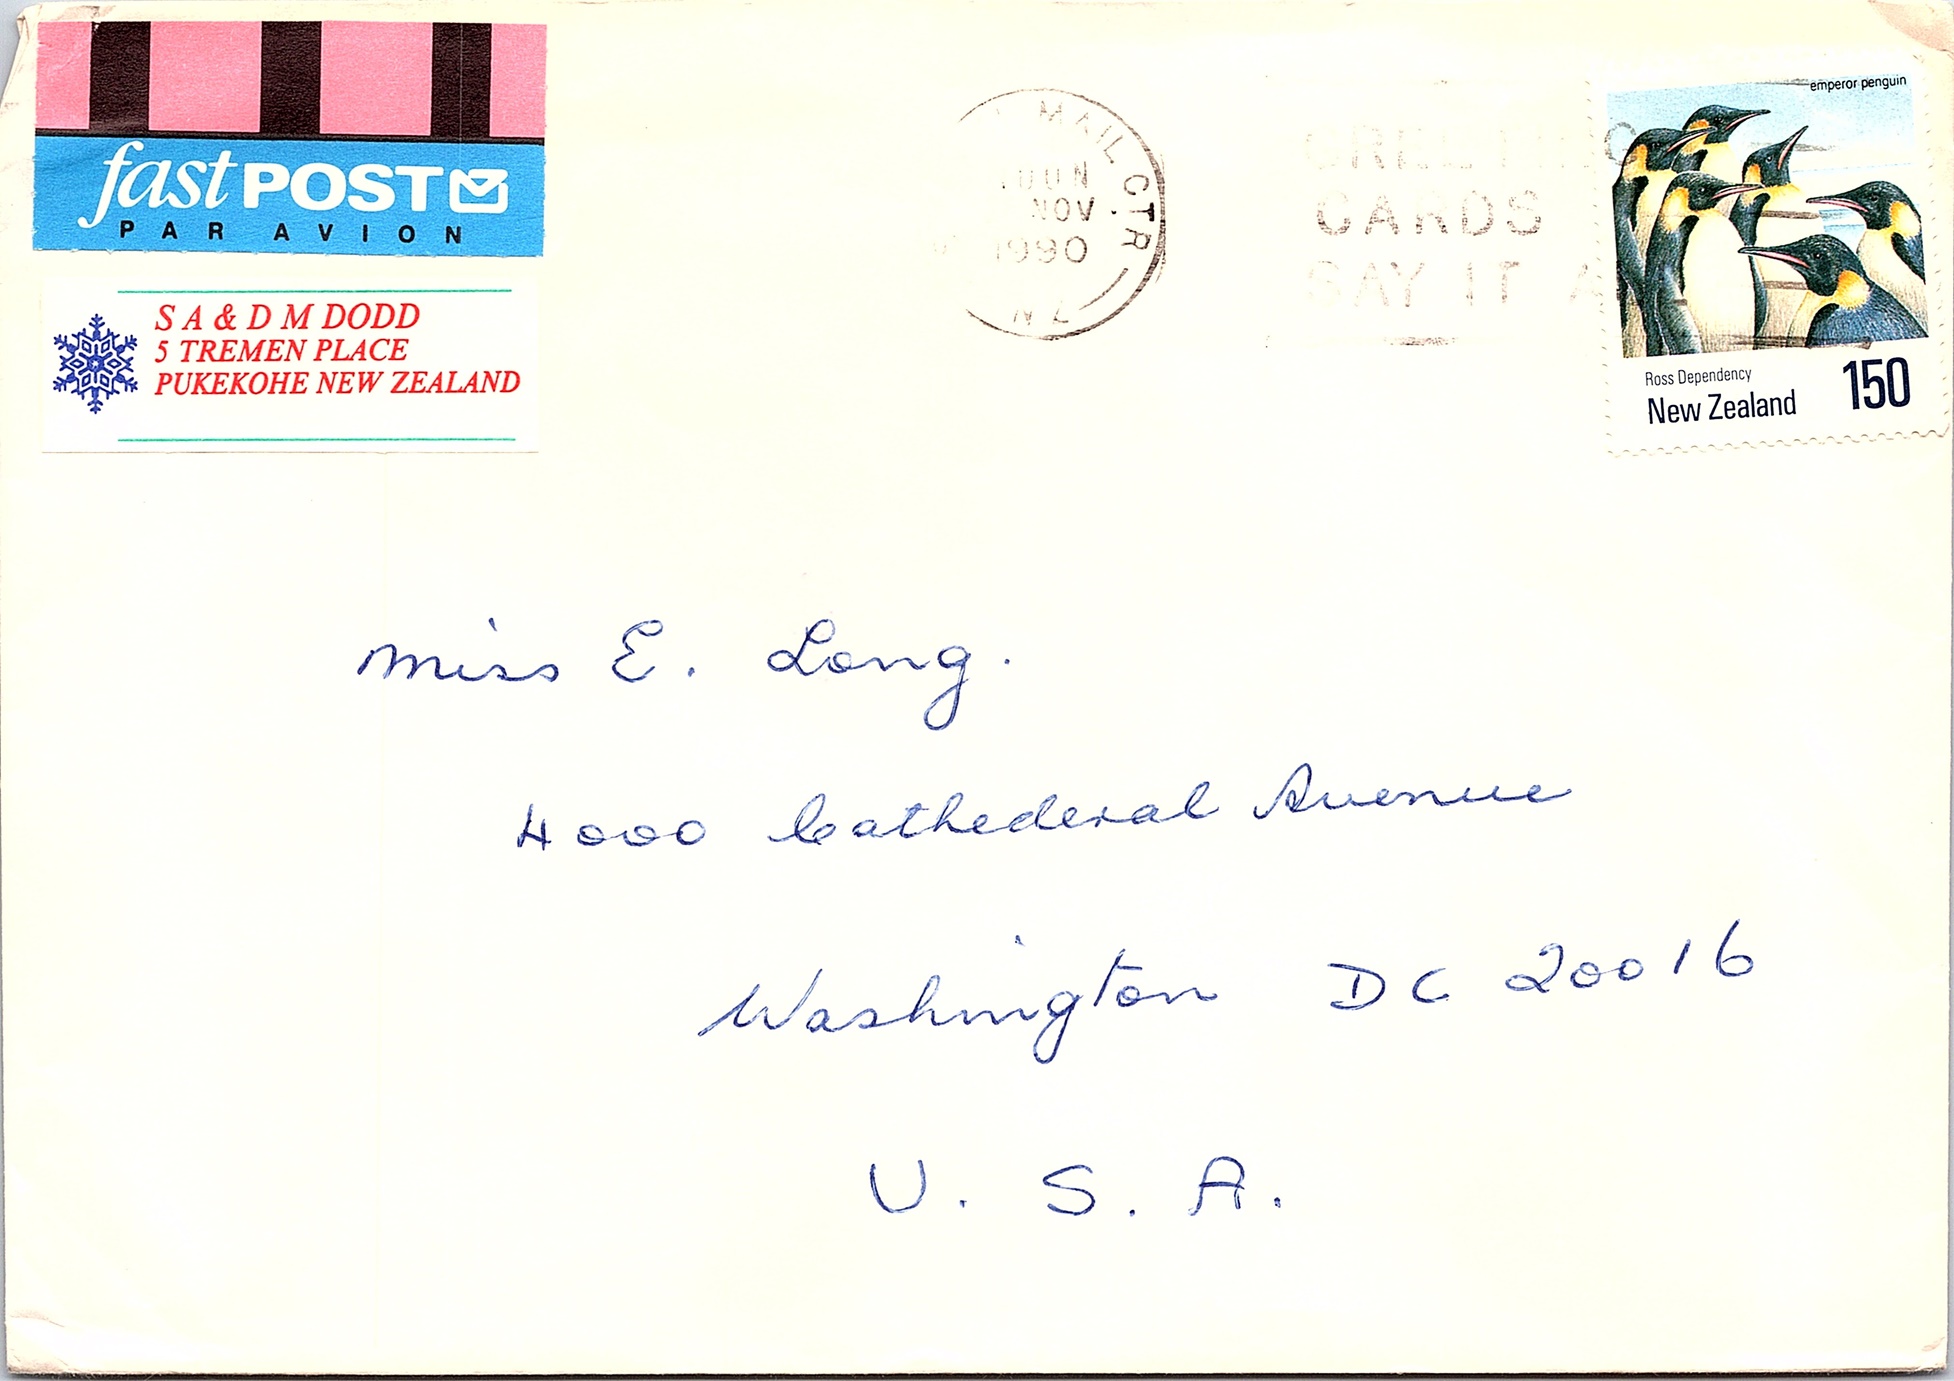 fast POST
PAR AVION
S A & D M DODD
5 TREMEN PLACE
PUKEKOHE NEW ZEALAND
MAIL CTR
NOV
1990
N Z
GREETING
CARDS
SAY IT A
emperor penguin
Ross Dependency
New Zealand 150
Miss E. Long.
4000 Cathederal Avenue
Washington DC 20016
U. S. A.